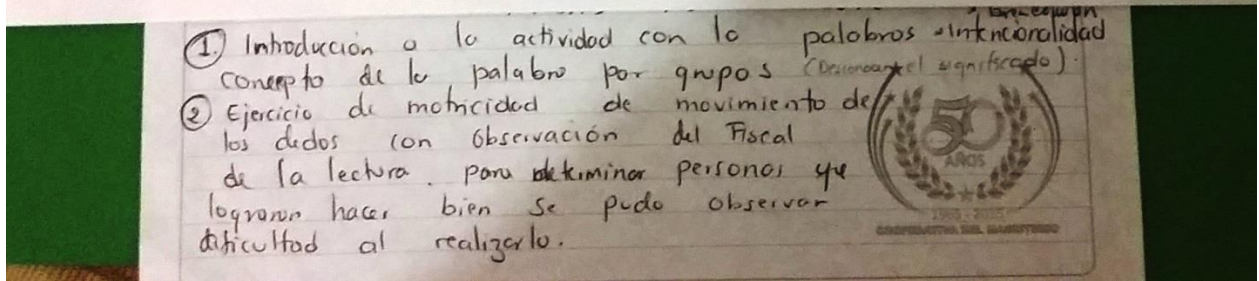 ① Introducción a la actividad con la palabras - Intencionalidad
concepto de la palabra por grupos (Desconocen el significado).
② Ejercicio de motricidad de movimiento de
los dedos con observación del Fiscal
de la lectura. para determinar personas que
lograron hacer bien se pudo observar
dificultad al realizarlo.
50
AÑOS
1965 - 2015
COOPERATIVA DEL MAGISTERIO